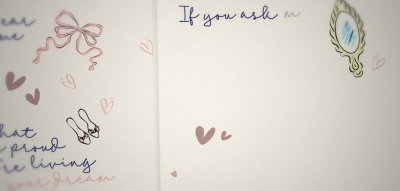 ear
me
hat
proud
're living
your dream
If you ask m